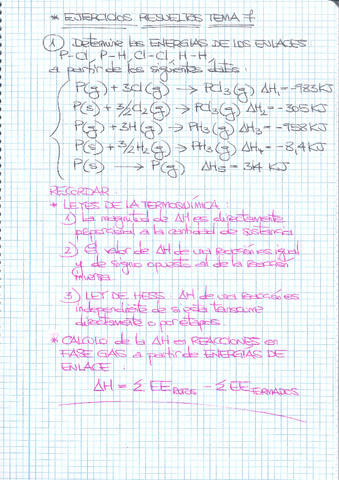 * EJERCICIOS RESUELTOS TEMA 7
① Determine las ENERGÍAS DE LOS ENLACES:
P-Cl, P-H, Cl-Cl, H-H,
a partir de los siguientes datos:
P(g) + 3Cl(g) → PCl3(g) ΔH1 = -983KJ
P(s) + 3/2 Cl2(g) → PCl3(g) ΔH2 = -305KJ
P(g) + 3H(g) → PH3(g) ΔH3 = -958KJ
P(s) + 3/2 H2(g) → PH3(g) ΔH4 = -8,4KJ
P(s) → P(g) ΔH5 = 314 KJ
RECORDAR:
* LEYES DE LA TERMOQUÍMICA:
1) La magnitud de ΔH es directamente
proporcional a la cantidad de sustancia.
2) El valor de ΔH de una reacción es igual
y de signo opuesto al de la reacción
inversa.
3) LEY DE HESS: ΔH de una reacción es
independiente de si ésta transcurre
directamente o por etapas.
* CALCULO de la ΔH en REACCIONES en
FASE GAS a partir de ENERGIAS DE
ENLACE:
ΔH = Σ EE ROTOS - Σ EE FORMADOS